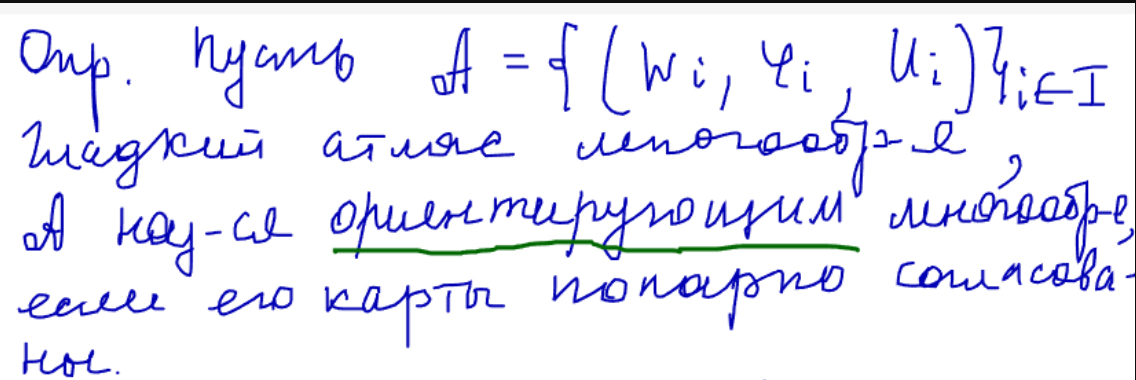 Опр. Пусть A = {(Wi, φi, Ui)}i∈I
гладкий атлас многообр-е,
A наз-ся ориентирующим многообр-е,
если его карты попарно согласова-
ны.